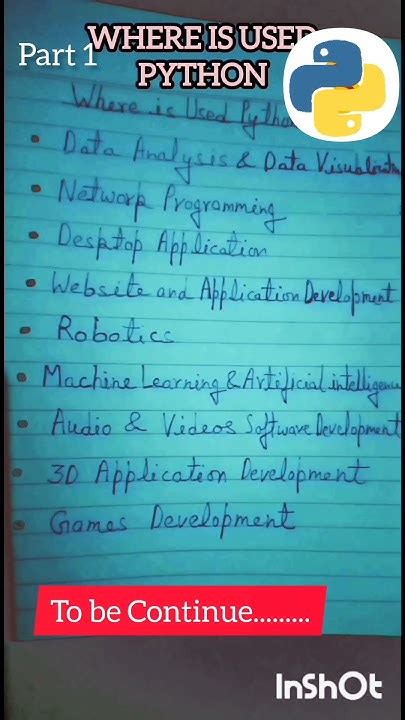 Part 1
WHERE IS USED
PYTHON
Where is Used Python
Data Analysis & Data Visualization
Network Programming
Desktop Application
Website and Application Development
Robotics
Machine Learning & Artificial intelligence
Audio & Videos Software Development
3D Application Development
Games Development
To be Continue.........
InShOt